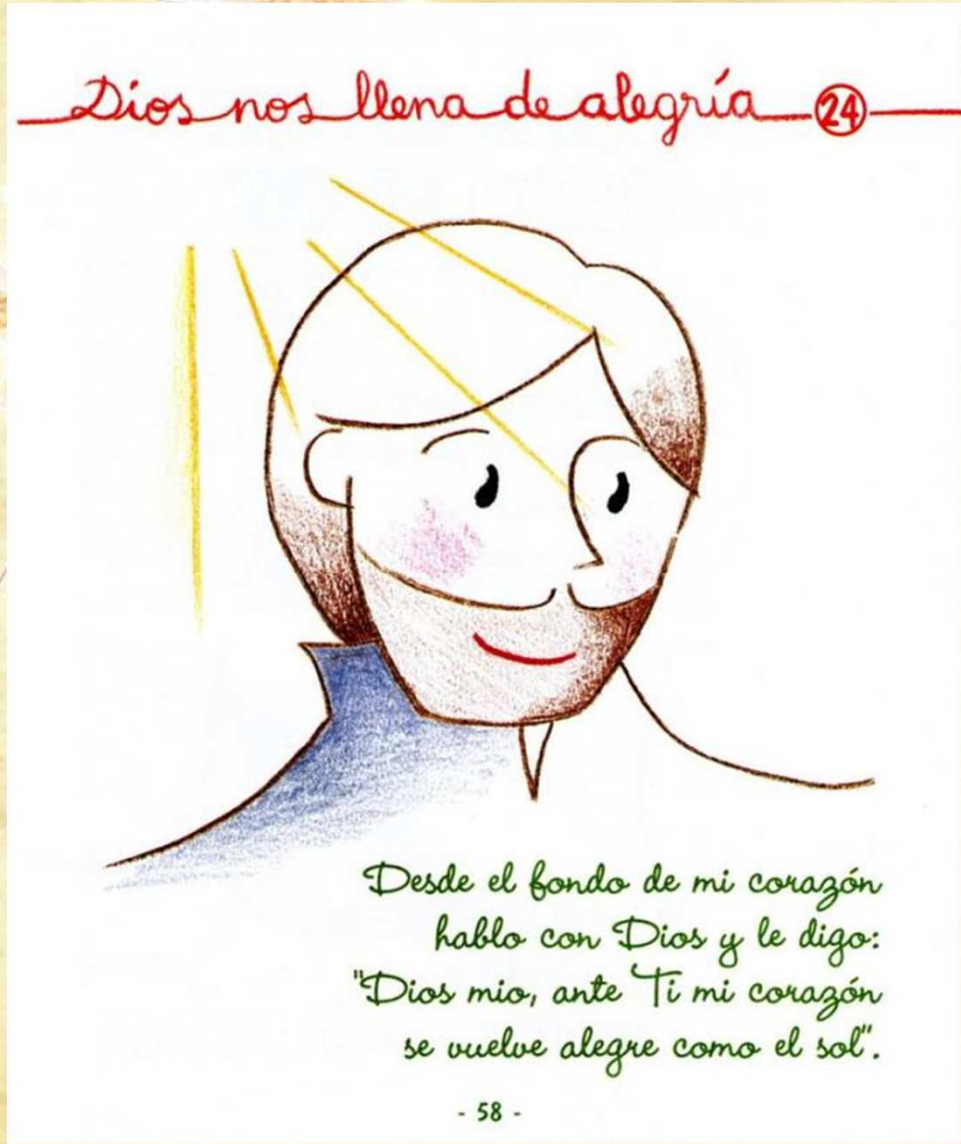 Dios nos llena de alegría 24
Desde el fondo de mi corazón
hablo con Dios y le digo:
"Dios mio, ante Ti mi corazón
se vuelve alegre como el sol".
- 58 -